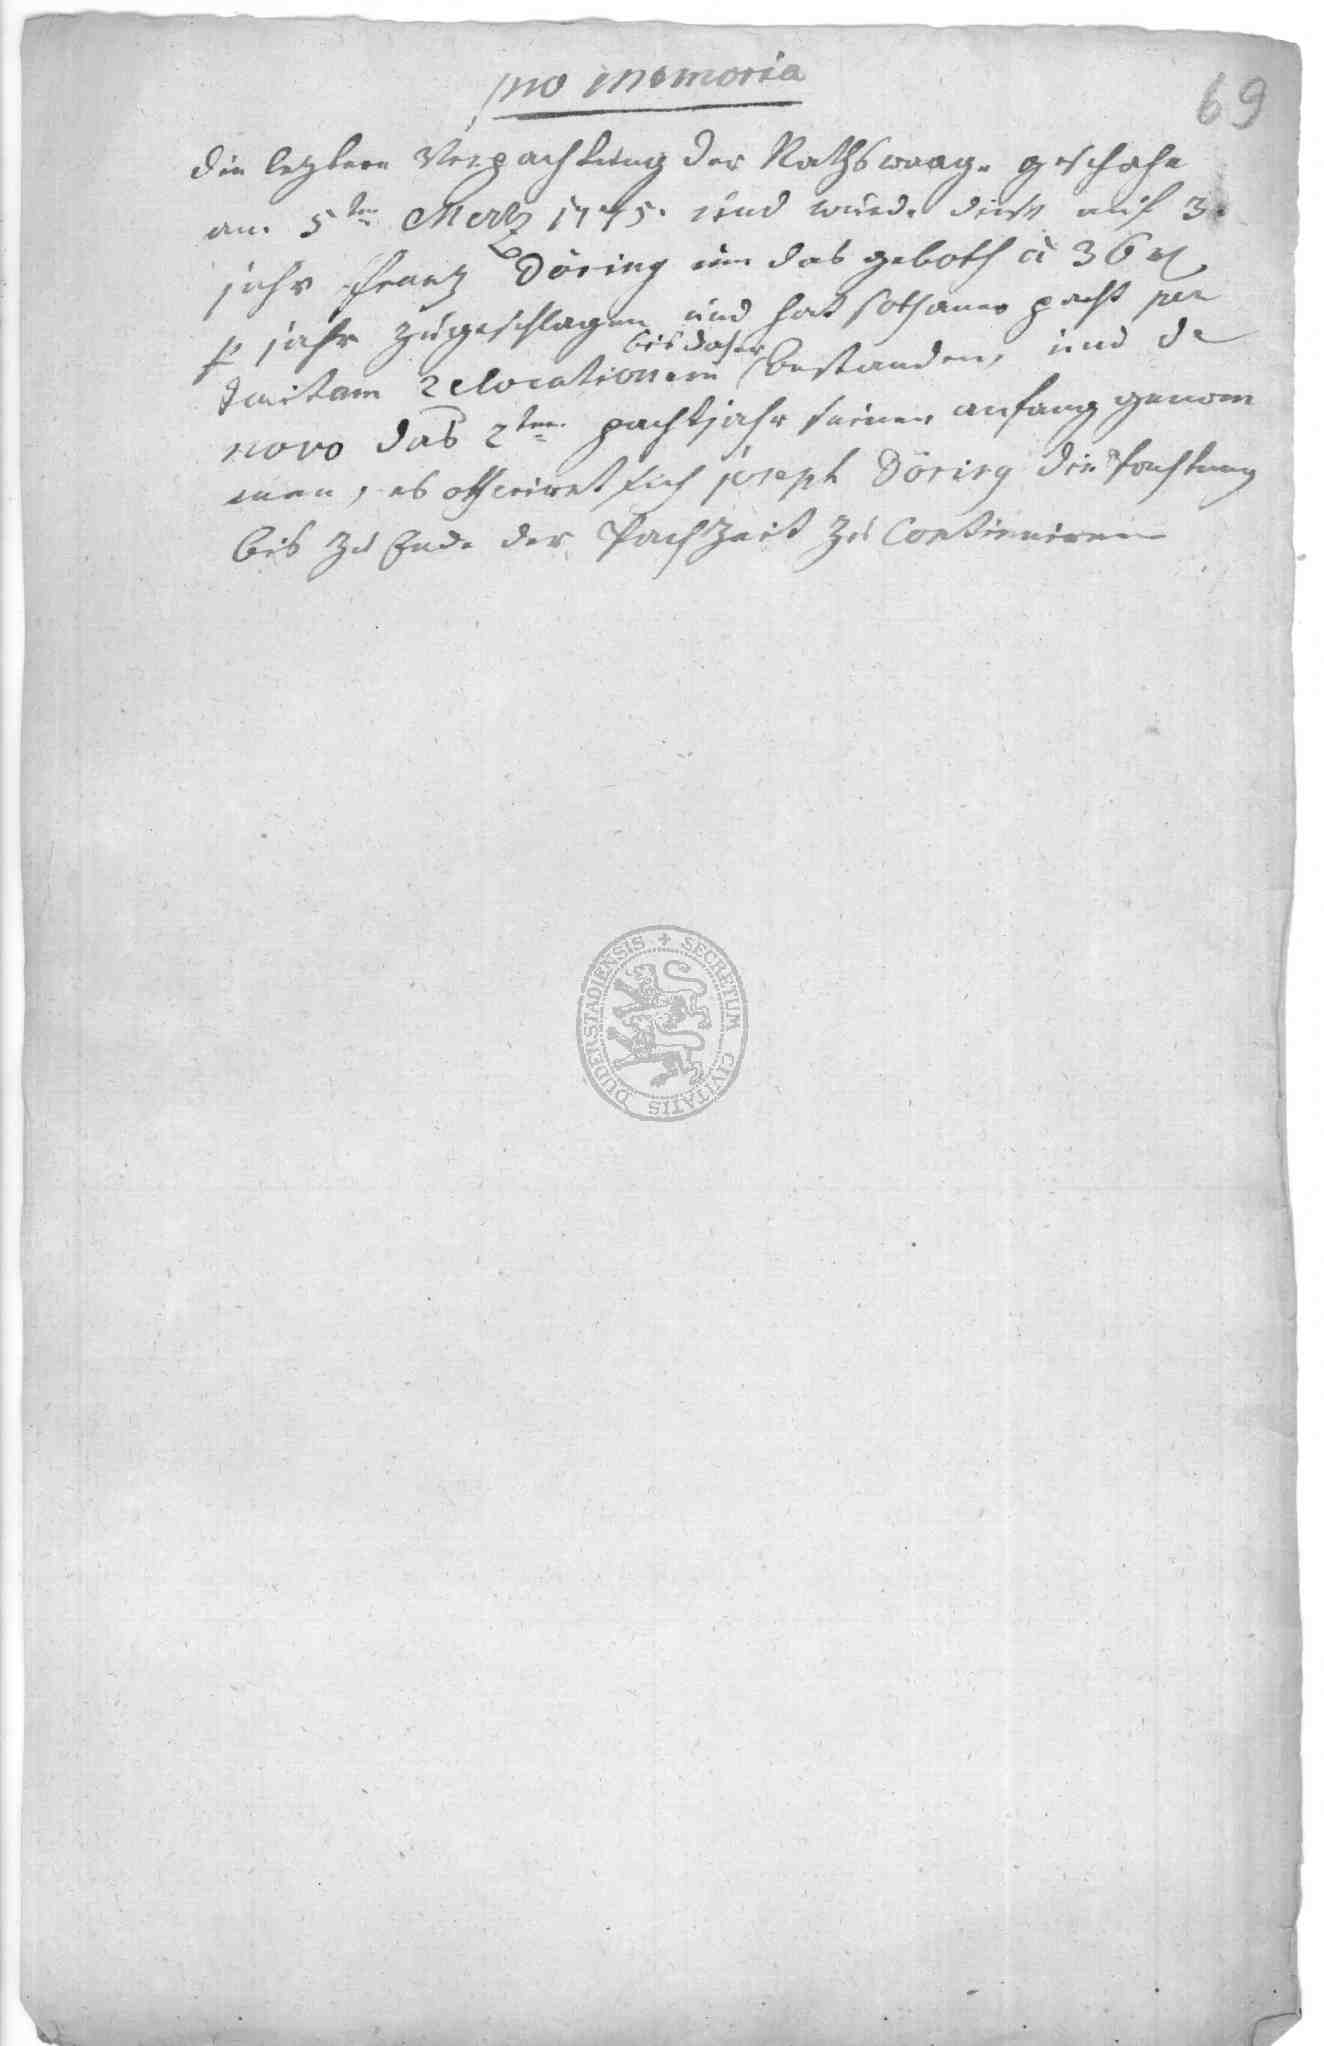 pro memoria
69
die leztere Verpachtung der Rathswaage geschahe
am 5ten Mertz 1775. und wurde diese auf 3.
jahr Frantz Döring um das geboth à 36
p jahr zugeschlagen und hat sothaner pacht per
bis daher
tacitam relocationem bestanden, und de
novo das 2te pachtjahr seinen anfang genom
men, es offeriret sich joseph Döring die Pachtung
bis zu Ende der Pachzeit zu Continuiren
SECRETUM CIVITATIS DUDERSTADIENSIS